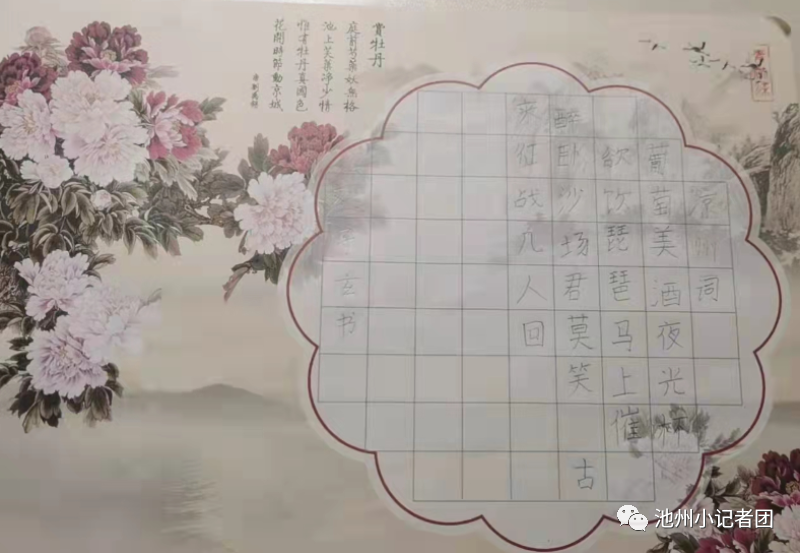 賞牡丹
庭前芍藥妖無格
池上芙蕖淨少情
惟有牡丹真國色
花開時節動京城
唐劉禹錫
凉州词
葡萄美酒夜光杯
欲饮琵琶马上催
醉卧沙场君莫笑古
来征战几人回
玄书
池州小记者团